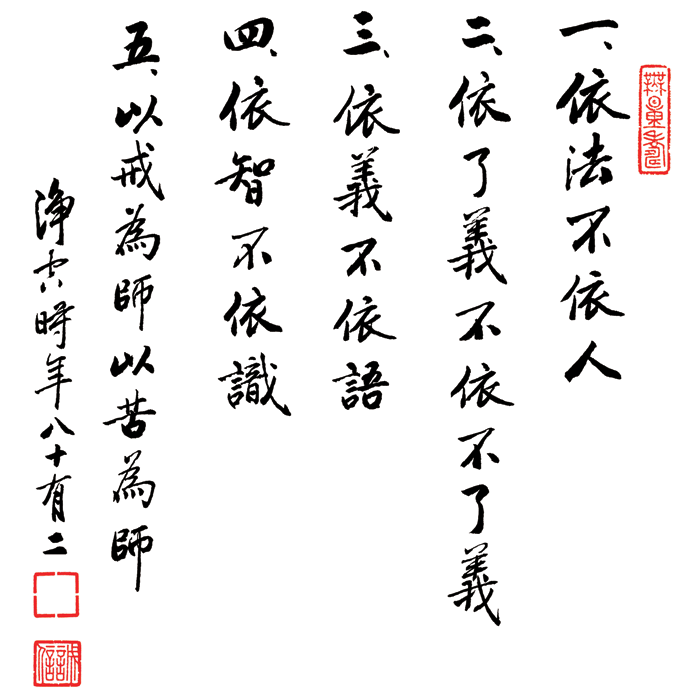 無量壽
一、依法不依人
二、依了義不依不了義
三、依義不依語
四、依智不依識
五、以戒為師以苦為師
淨空時年八十有二